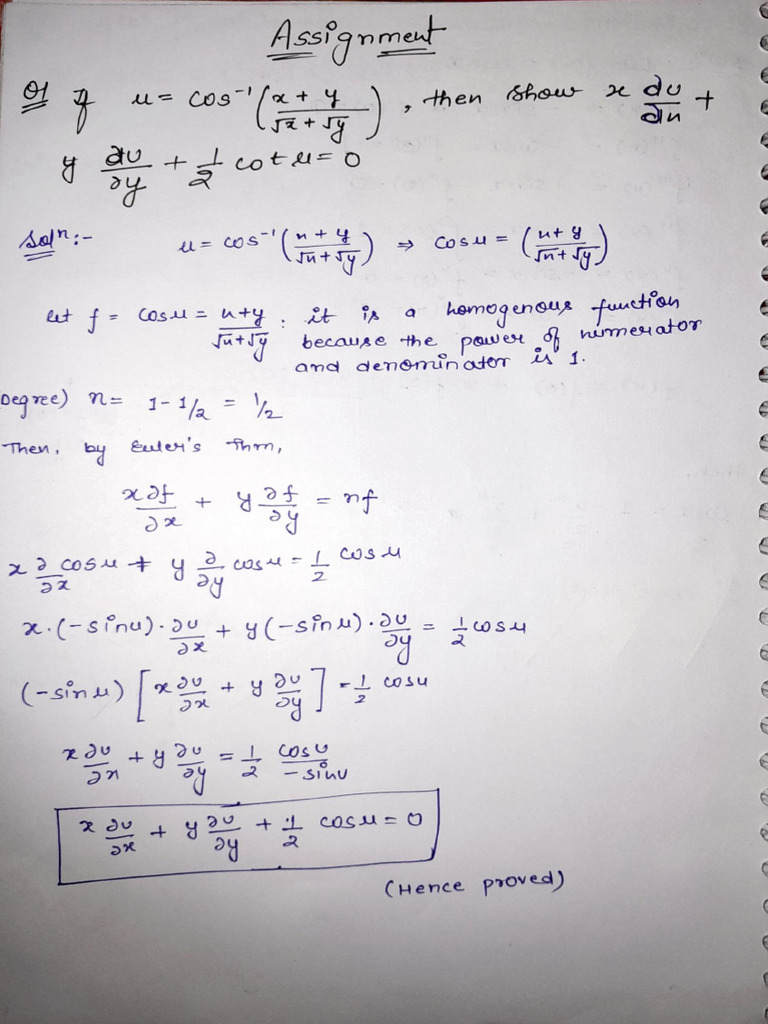 Assignment
Q1 If u = cos⁻¹ (x + y / √x + √y), then show x du/dx +
y ∂u/∂y + 1/2 cot u = 0
Solⁿ:- u = cos⁻¹ (x + y / √x + √y) ⇒ cos u = (x + y / √x + √y)
let f = cos u = x + y / √x + √y . it is a homogenous function
because the power of numerator
and denominator is 1.
Degree) n = 1 - 1/2 = 1/2
Then, by Euler's Thm,
x ∂f/∂x + y ∂f/∂y = nf
x ∂/∂x cos u + y ∂/∂y cos u = 1/2 cos u
x . (-sin u) . ∂u/∂x + y (-sin u) . ∂u/∂y = 1/2 cos u
(-sin u) [x ∂u/∂x + y ∂u/∂y] = 1/2 cos u
x ∂u/∂x + y ∂u/∂y = 1/2 cos u / -sin u
x ∂u/∂x + y ∂u/∂y + 1/2 cos u = 0
(Hence proved)